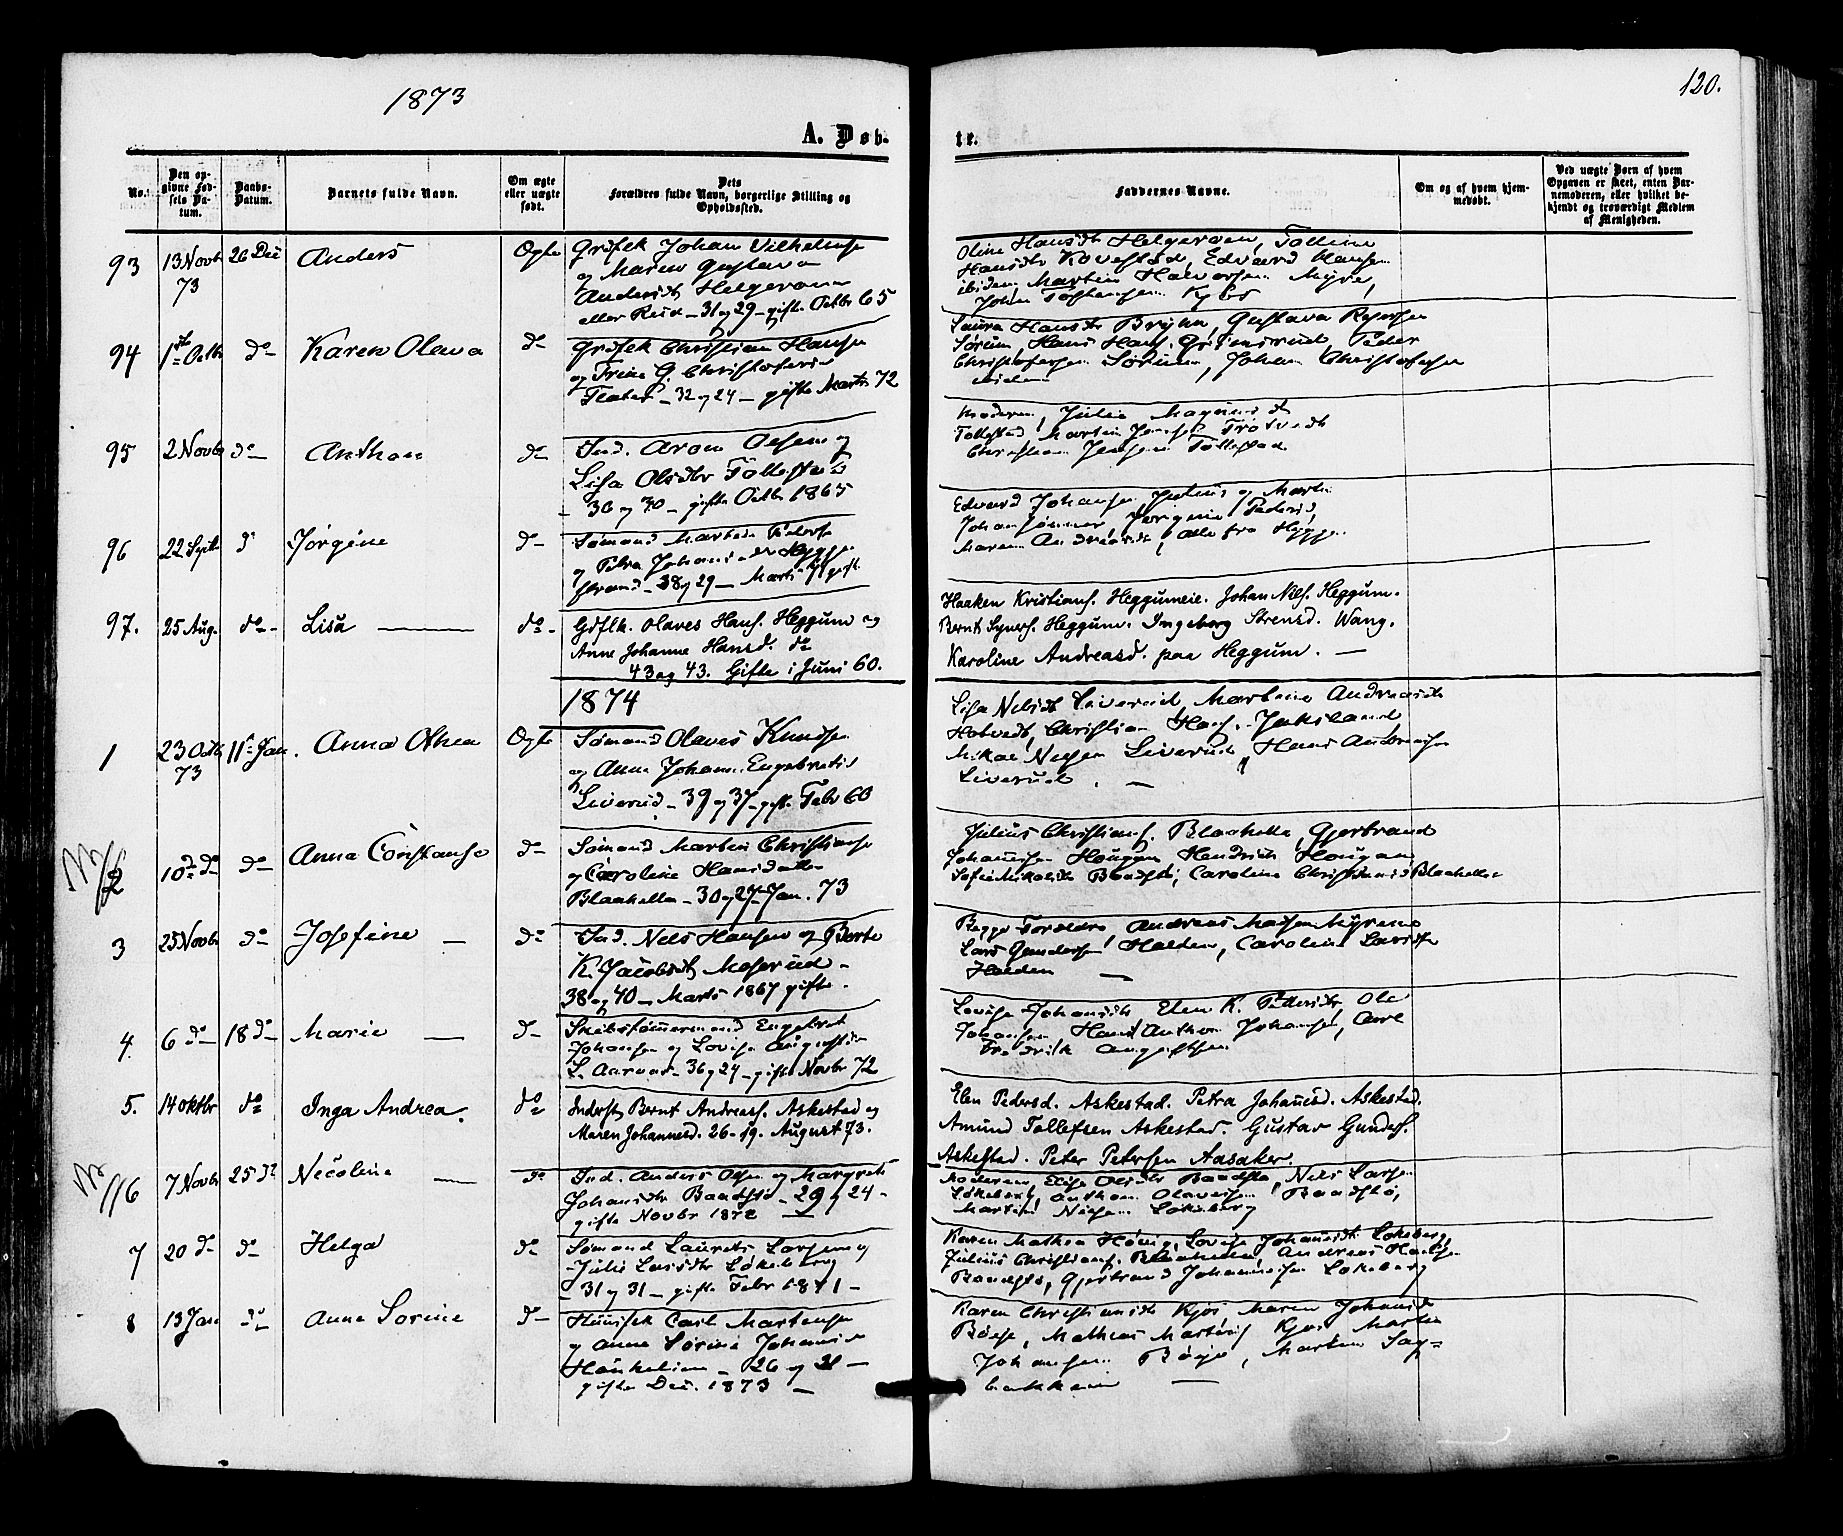 1873
120.
A. Døb-
te.
No.
Den op-
givne Fød-
sels Da-
tum.
Daabs-
Datum.
Barnets fulde Navn.
Om ægte
eller uægte
født.
Dets
Forældres fulde Navn, borgerlige Stilling og
Opholdssted.
Faddernes Navne.
Om og af hvem hjem-
medøbt.
Ved uægte Børn af hvem
Opgaven er skeet, enten Bar-
nemoderen, eller hvilket be-
kjendt og troværdigt Medlem
af Menigheden.
93 13 Novb 73 26 Dec Anders Ægte
Grdsek Johan Vilhelmse
og Maren Gustava
Andersdt Helgeroen
eller Reid - 31 og 29 - gifte Octbr 65
Oline Hansdt Helgeroen, Tolline
Hansdtr Kovestad, Edvard Hansen
ibidem Martin Halvorsen Myre,
Johan
94 1ste Octb do Karen Olava do
Grdsek Christian Hansen
og Trine G. Christofersd
- 32 og 24 - gifte Marts 72
Laura Hansdtr Gustava
Sørum, Hans Hans. Grimsrud, Peder
Christofersen Sørum, Johan Christofersen
95 2 Novbr do Anthon do
Ind. Aron Olsen og
Lisa Olsdtr Tollestad
36 og 40 - gifte Octbr 1865
Moderen, Julie Magnusdt
Tollestad Martin Jensen Trotvedt
Christian Jensen Tollestad
96 22 Sept do Jørgine do
Sømand Martin Peders
og Petra Johansd Hygge
strand - 38 og 29 - Marts 71 gift
Edvard Johansen, Julius og Martin
Johan Jørgine Pedersd,
Maren Andreasdt, alle fra Hygge
97. 25 Aug. do Lisa - do
Grdsk. Olaves Hans. Heggum og
Anne Johanne Hansd. do
43 og 43. Gifte i Juni 60.
Haaken Kristians. Heggumeie. Johan Nils. Heggum.
Bernt Syvers. Heggum. Ingeborg Sørensd. Wang.
Karoline Andreasd. paa Heggum. -
1874
1 23 Octb 73 11te Jan. Anna Othea Ægte
Sømand Olaves Knudsen
og Anne Johanne Engebretsd
Liverud - 39 og 37 - gifte Febr 60
Lisa Nilsdt Liverud, Martine Andreasdt
Hotvedt, Christian Hans. Juksland
Mikal Nielsen Liverud, Hans Andreasen
Liverud. -
2 10de do do Anna Constanse do
Sømand Martin Christianse
og Caroline Hansdatter
Blaahella - 30 og 27 - Jan. 73
Julius Christians. Blaahella, Gjerbrand
Johannesen Hougan Hendrich Hougan
Sofie Nikolidt Baadstø, Caroline Christiansd Blaahella
3 25 Novbr do Josefine - do
Ind. Nils Hansen og Berte
K. Jacobsdt Moserud -
38 og 40 - Marts 1867 gifte.
Begge Forældre, Andreas Madsen Myrene
Lars Gundersen Halden, Caroline Larsdtr
Halden -
4. 6 do 18 do Marie - do
Skibstømmermand Engebret
Johansen og Lovise Augustsd
S. Aarvar - 36 og 24 - gifte Novbr 72
Lovise Johansdtr Elen K. Pedersdtr Ole
Johansen Hans Anthon Johansen, Carl
Fredrik Augustsen
5. 14 Oktbr do Inga Andrea. do
Inderst Bernt Andreass. Askestad og
Maren Johannesd. 26-19. August 73.
Elen Pedersd. Askestad. Petra Johannesd. Askestad.
Amund Tollefsen Askestad. Gustav Gunders.
Askestad. Peter Petersen Aasaker.
6 7 Novbr 25 do Nicoline - do
Ind. Anders Olsen og Margrete
Johansdtr Baadstø - 29 og 24 -
gifte Novbr 1872 -
Moderen, Elise Olsdtr Baadstø, Nils Larsen
Løkeberg, Anthon Olavesen Baadstø,
Martin Nilsen Løkeberg
7 20 do do Helga do
Sømand Laurits Larsen og
Julie Larsdtr Løkeberg
- 31 og 31 - gifte Febr 1871 -
Karen Mathea Hønig, Lovise Johansdt Løkeberg,
Julius Christians. Blaahella, Andreas Hansen
Baadstø, Gjerbrand Johannesen Løkeberg
8 13 Jan do Anne Sorine do
Huusek Carl Martinsen
og Anne Sørine Johansd
- 26 og 21 -
gifte Dec. 1873 -
Karen Christiansdt Kjøs Maren Johansd
Bøeje, Mathias Martins. Kjøs Martin
Johansen Bøeje, Martin Sag-
bakken -